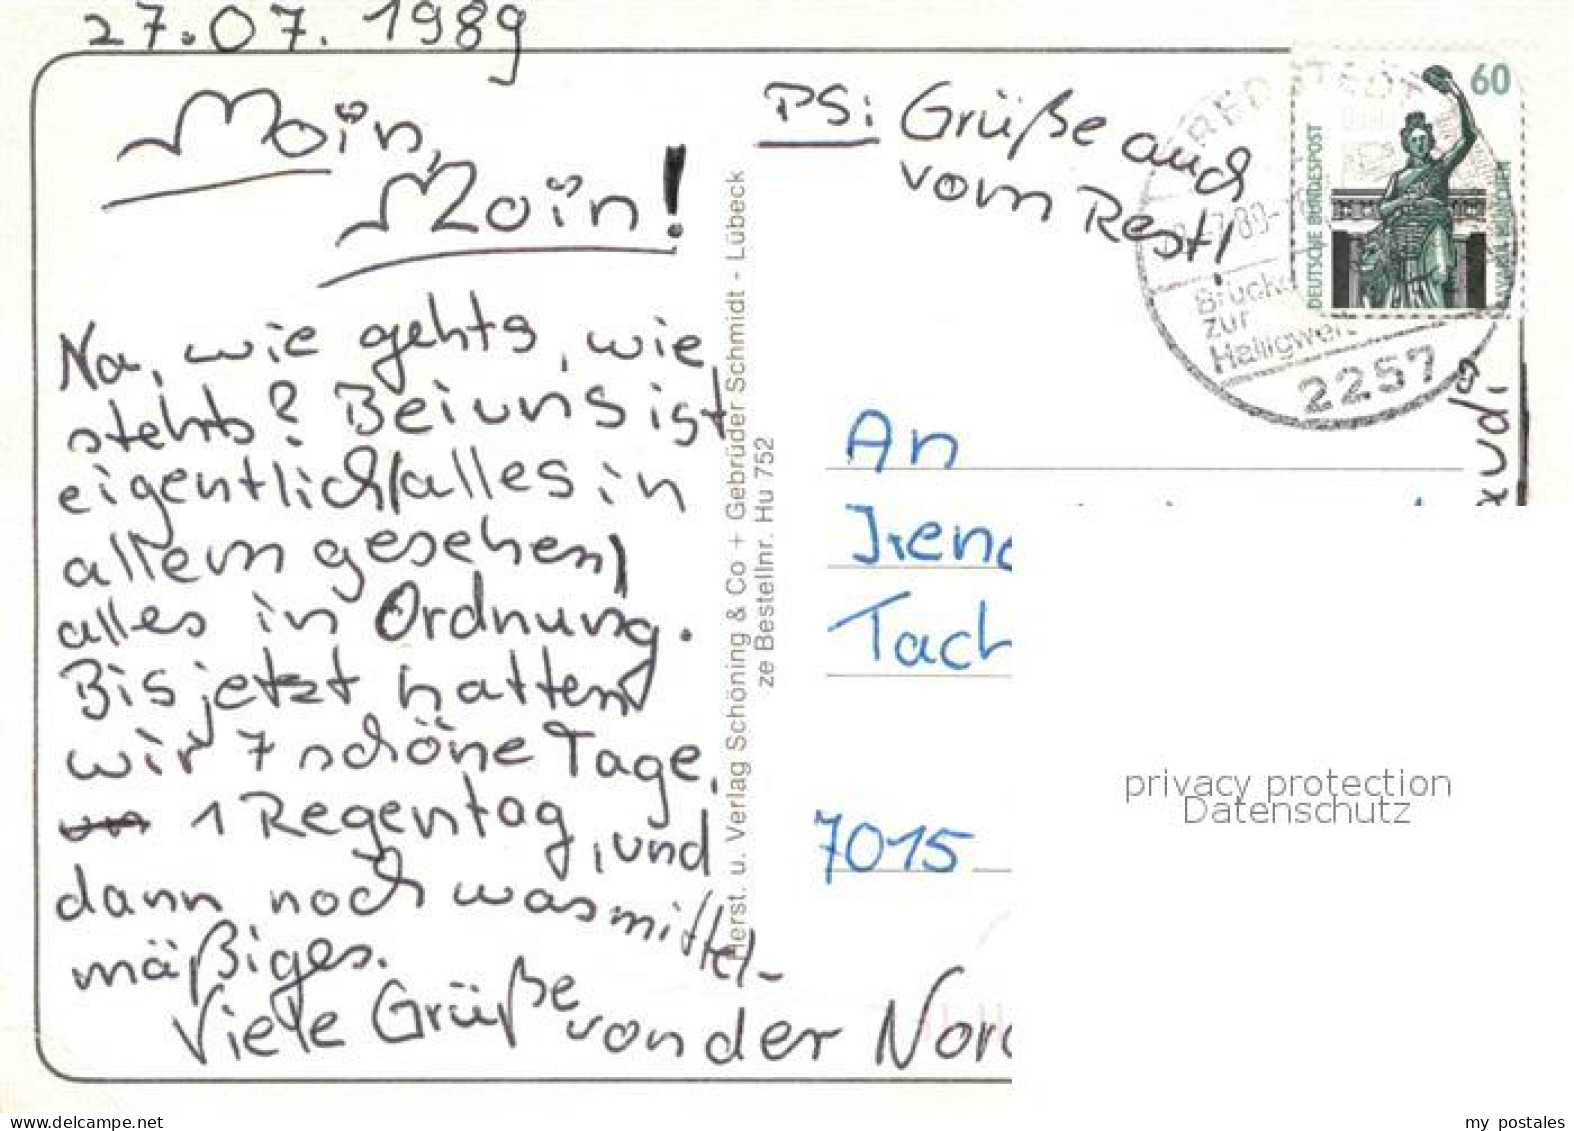 27.07.1989
Moin,
Moin!
Na, wie gehts, wie
stehts? Bei uns ist
eigentlich (alles in
allem gesehen)
alles in Ordnung.
Bis jetzt hatten
wir 7 schöne Tage,
1 Regentag, und
dann noch was mittel-
mäßiges.
Viele Grüße von der Nord
PS: Grüße auch
vom Rest!
Herst. u. Verlag Schöning & Co + Gebrüder Schmidt - Lübeck
ze Bestellnr. Hu 752
60
DEUTSCHE BUNDESPOST
BAVARIA MÜNCHEN
REDSTEDT
Brücke
zur
Halligwelt
2257
An
Tach
7015
privacy protection
Datenschutz
www.delcampe.net
my_postales